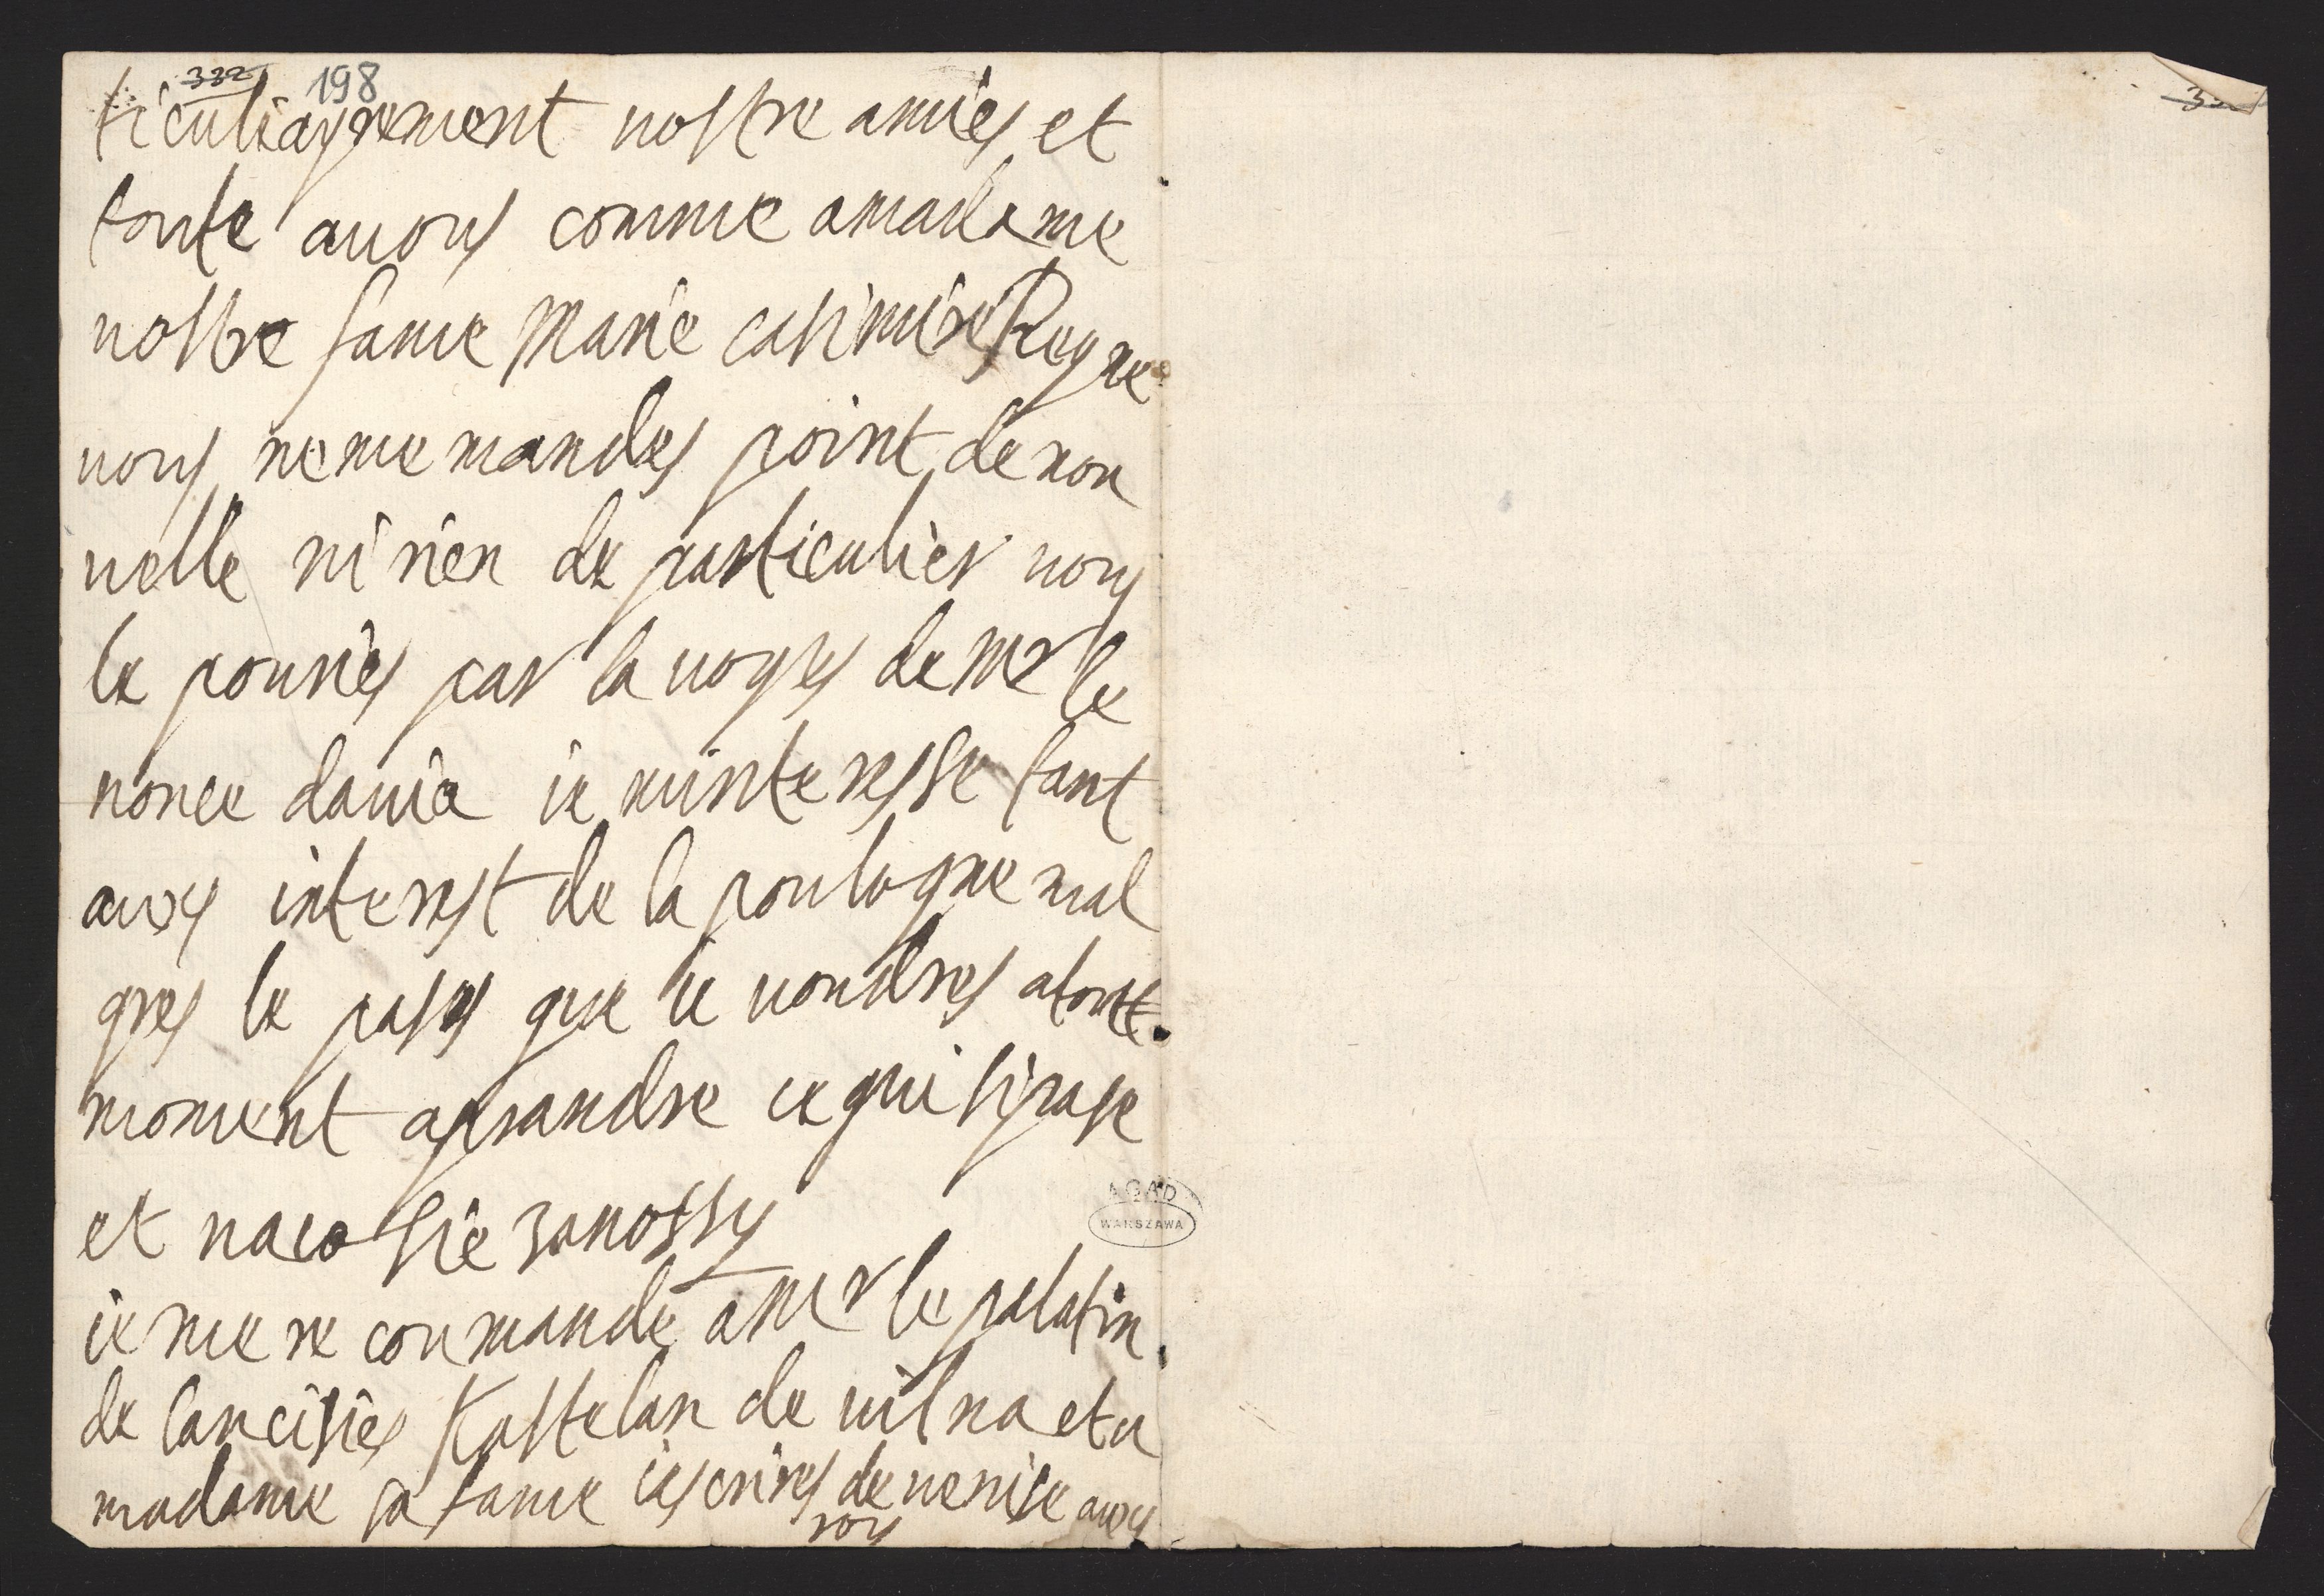 332 198
ticuliayrement vostre amies et
toute avous comme amadame
vostre fame Marie casimire Reyne
vous neme mandes point de nou
velle ni rien de particulier vous
le pouries par la voyes de Mr le
nonce davia ie mintéresse tant
aux interest de la poulogne mal
gres le passes que ie voudres atout
moment aprandre ce qui sipase
et
ie me re commande a Mr le palatin
de lancisies Kastelan de vilna et a
madame sa fame iescrires de venise aux
roy
AGAD
WARSZAWA